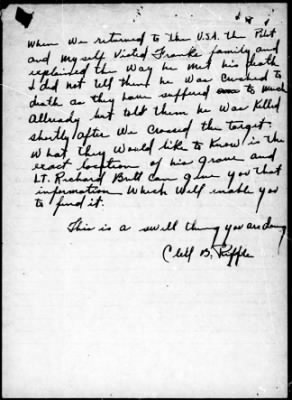 When we returned to the U.S.A. the Pilot
and myself Visted Franke family and
explained the Way he met his death
I did not tell them he Was Crushed to
death as they have suffered to much
allready but told them he Was Killed
shortly after We Crossed the target.
What they Would like to Know is the
exact location of his grave and
LT. Richard Butt Can give you that
information Which Will enable you
to find it.
This is a swell thing you are doing
B. Riffle